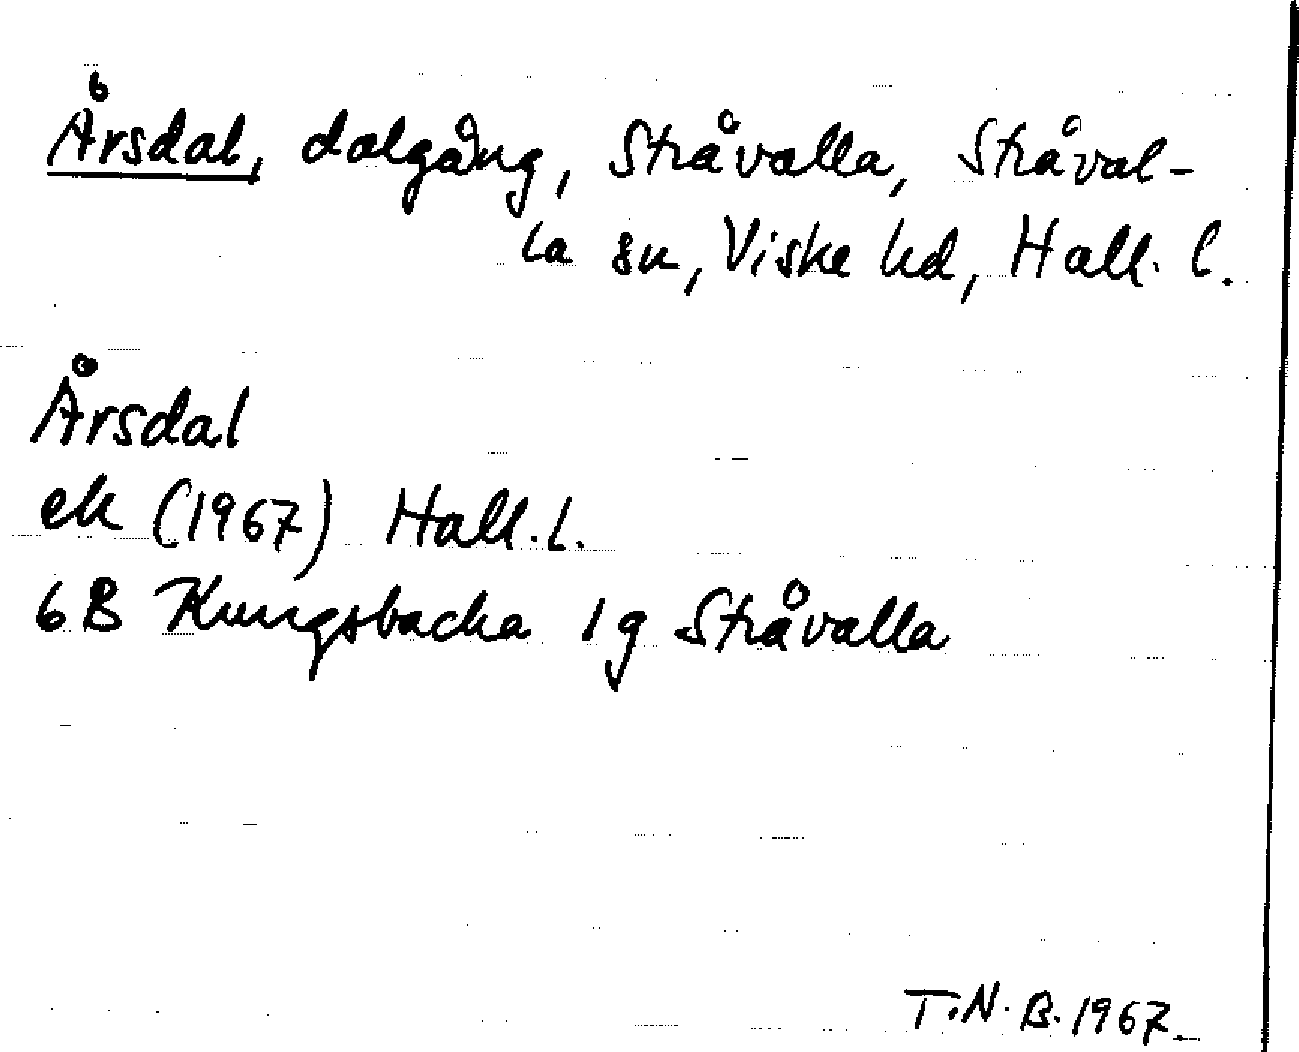 Årsdal, dalgång, Stråvalla, Stråval-
la sn, Viske hd, Hall. l.
Årsdal
ek (1967) Hall. l.
6B Kungsbacka 1g Stråvalla
T.N.B. 1967.